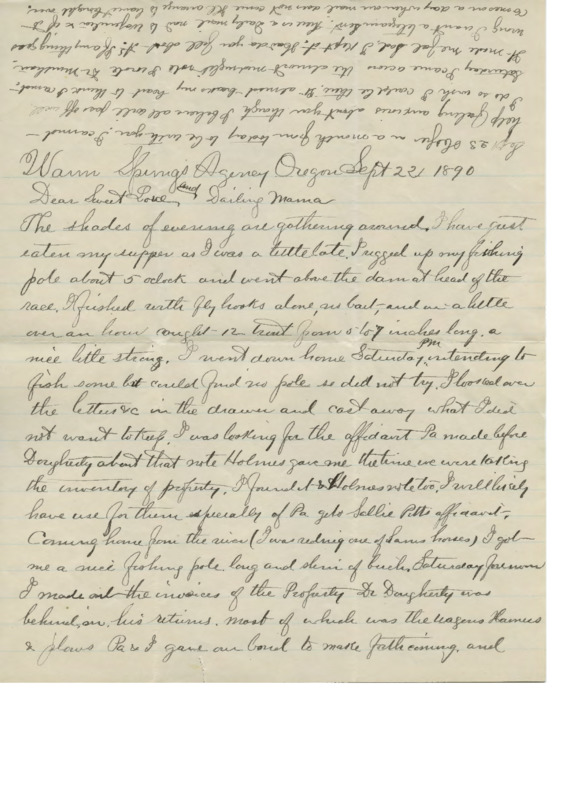 Warm Springs Agency Oregon Sept 22 1890
Dear Sweet Love and Darling Mama
The shades of evening are gathering around. I have just
eaten my supper as I was a little late. I rigged up my fishing
pole about 5 oclock and went above the dam at head of the
race, I fished with fly hooks alone, no bait, and in a little
over an hour caught 12 trout from 5 to 7 inches long. a
nice little string. I went down home Saturday pm intending to
fish some but could find no pole so did not try. I looked over
the letters &c in the drawer and cast away what I did
not want to keep. I was looking for the affidavit Pa made before
Dougherty about that note Holmes gave me the time we were taking
the inventory of property. I found it & Holmes note too. I will likely
have use for them especially if Pa gets Sallie Pitts affidavit.
Coming home from the river (I was riding one of Sams horses) I got
me a nice fishing pole long and slim of birch. Saturday forenoon
I made out the invoices of the Property Dr Dougherty was
behind on his returns. most of which was the wagons Harness
& plows Pa & I gave our bond to make forthcoming, and
Sept 23 in a month from today to be with you. I cannot
help feeling anxious about you though I believe all will pass off well
I do so wish I could be there.
Saturday I came across the almost note I wrote
It made me feel sad. I kept it. If anything goes
wrong I want a telegram sent. there is a daily mail now to & if it
comes on a day when our mail does not come KC arrange to have it brought out.